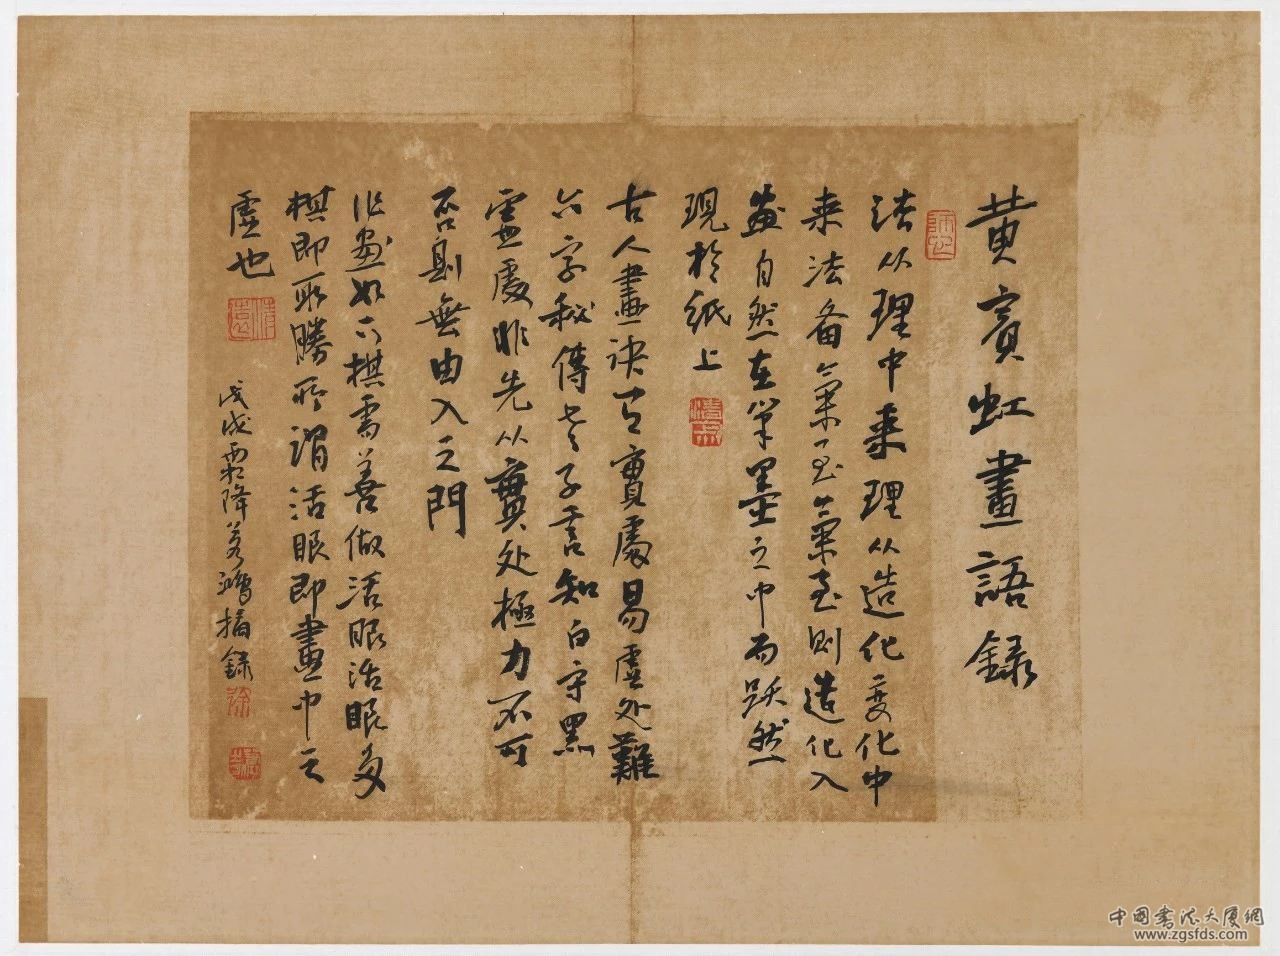 黄賓虹畫語録
法从理中来理从造化变化中
来法备氣至氣至則造化入
畫自然在筆墨之中而跃然
現於紙上
古人畫訣有實處易虚处難
六字秘傳老子言知白守黑
虚處非先从實处極力不可
否則無由入之門
作畫如下棋需善做活眼活眼多
棋即取勝所謂活眼即畫中之
虚也
戊戌霜降若鴻摘録
中國書法大廈網
www.zgsfds.com